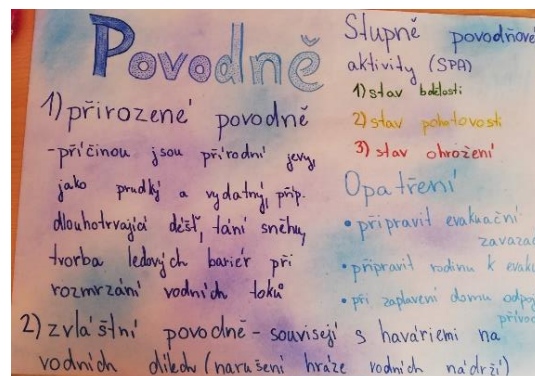 Povodně
1) přirozené povodně
-příčinou jsou přírodní jevy,
jako prudký a vydatný, příp.
dlouhotrvající déšť, tání sněhu,
tvorba ledových bariér při
rozmrzání vodních toků
2) zvláštní povodně - souvisejí s haváriemi na
vodních dílech (narušení hráze vodních nádrží)
Stupně povodňové
aktivity (SPA)
1) stav bdělosti
2) stav pohotovosti
3) stav ohrožení
Opatření
• připravit evakuační
zavazad
• připravit rodinu k evaku
• při zaplavení domu odpoj
přívod